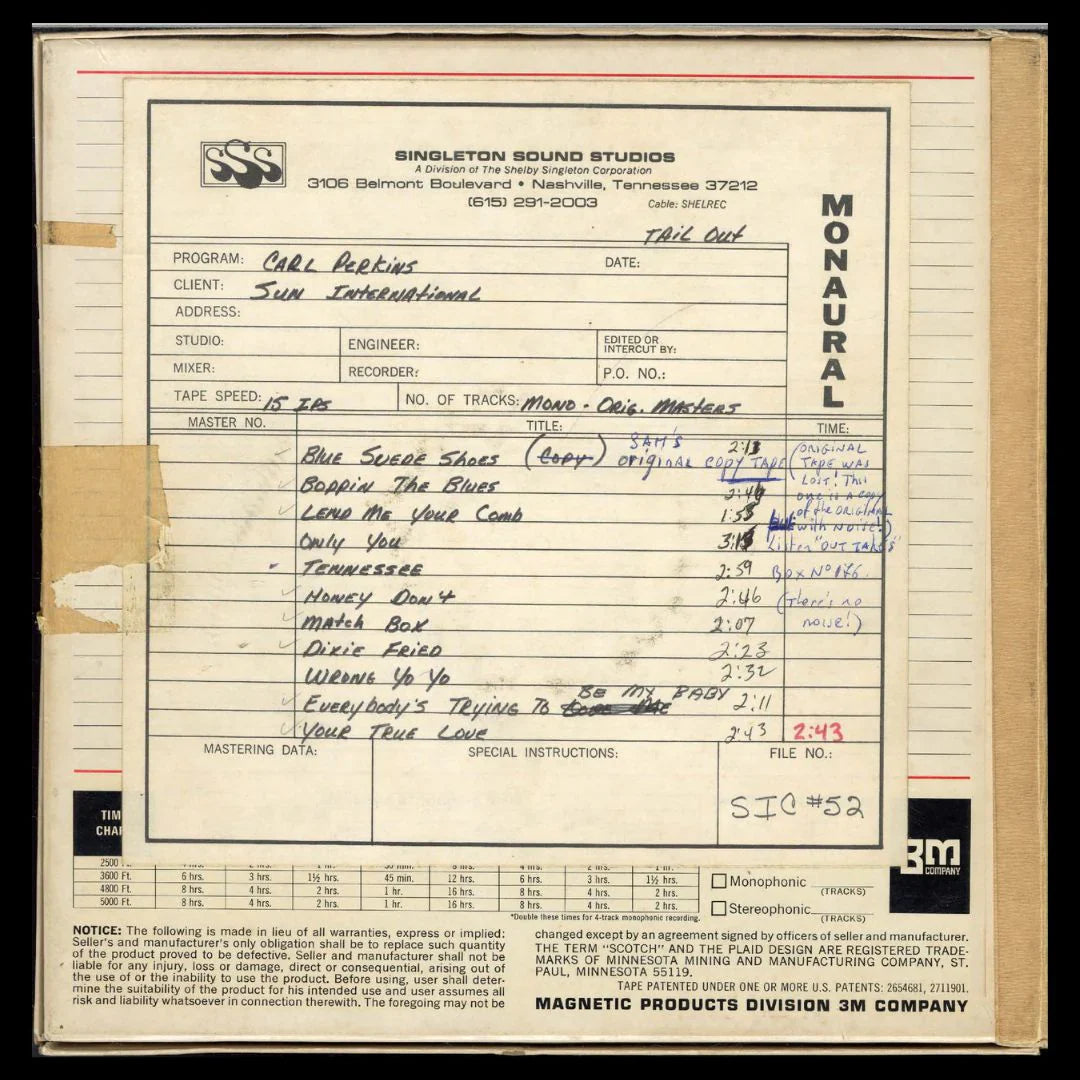 SSS
SINGLETON SOUND STUDIOS
A Division of The Shelby Singleton Corporation
3106 Belmont Boulevard • Nashville, Tennessee 37212
(615) 291-2003 Cable: SHELREC
MONAURAL
TAIL OUT
PROGRAM: CARL PERKINS DATE:
CLIENT: SUN INTERNATIONAL
ADDRESS:
STUDIO: ENGINEER: EDITED OR INTERCUT BY:
MIXER: RECORDER: P.O. NO.:
TAPE SPEED: 15 IPS NO. OF TRACKS: MONO - ORIG. MASTERS
MASTER NO. TITLE: TIME:
BLUE SUEDE SHOES (COPY) SAM'S original COPY TAPE 2:13
BOPPIN THE BLUES
LEND ME YOUR COMB 1:53
ONLY YOU
TENNESSEE 2:59
HONEY DON'T 2:46
MATCH BOX 2:07
DIXIE FRIED 2:23
WRONG YO YO 2:32
EVERYBODY'S TRYING TO BE MY BABY 2:11
YOUR TRUE LOVE 2:43 2:43
(ORIGINAL
TAPE WAS
LOST! This
one is a copy
of the ORIGINAL
with NOISE!)
Listen "OUT TAKES"
BOX Nº 176.
(There's no
noise!)
MASTERING DATA: SPECIAL INSTRUCTIONS: FILE NO.:
SIC #52
TIM
CHAR
2500
3600 Ft. 6 hrs. 3 hrs. 1½ hrs. 45 min. 12 hrs. 6 hrs. 3 hrs. 1½ hrs.
4800 Ft. 8 hrs. 4 hrs. 2 hrs. 1 hr. 16 hrs. 8 hrs. 4 hrs. 2 hrs.
5000 Ft. 8 hrs. 4 hrs. 2 hrs. 1 hr. 16 hrs. 8 hrs. 4 hrs. 2 hrs.
*Double these times for 4-track monophonic recording.
Monophonic (TRACKS)
Stereophonic (TRACKS)
3M
COMPANY
NOTICE: The following is made in lieu of all warranties, express or implied:
Seller's and manufacturer's only obligation shall be to replace such quantity
of the product proved to be defective. Seller and manufacturer shall not be
liable for any injury, loss or damage, direct or consequential, arising out of
the use of or the inability to use the product. Before using, user shall deter-
mine the suitability of the product for his intended use and user assumes all
risk and liability whatsoever in connection therewith. The foregoing may not be
changed except by an agreement signed by officers of seller and manufacturer.
THE TERM "SCOTCH" AND THE PLAID DESIGN ARE REGISTERED TRADE-
MARKS OF MINNESOTA MINING AND MANUFACTURING COMPANY, ST.
PAUL, MINNESOTA 55119.
TAPE PATENTED UNDER ONE OR MORE U.S. PATENTS: 2654681, 2711901.
MAGNETIC PRODUCTS DIVISION 3M COMPANY